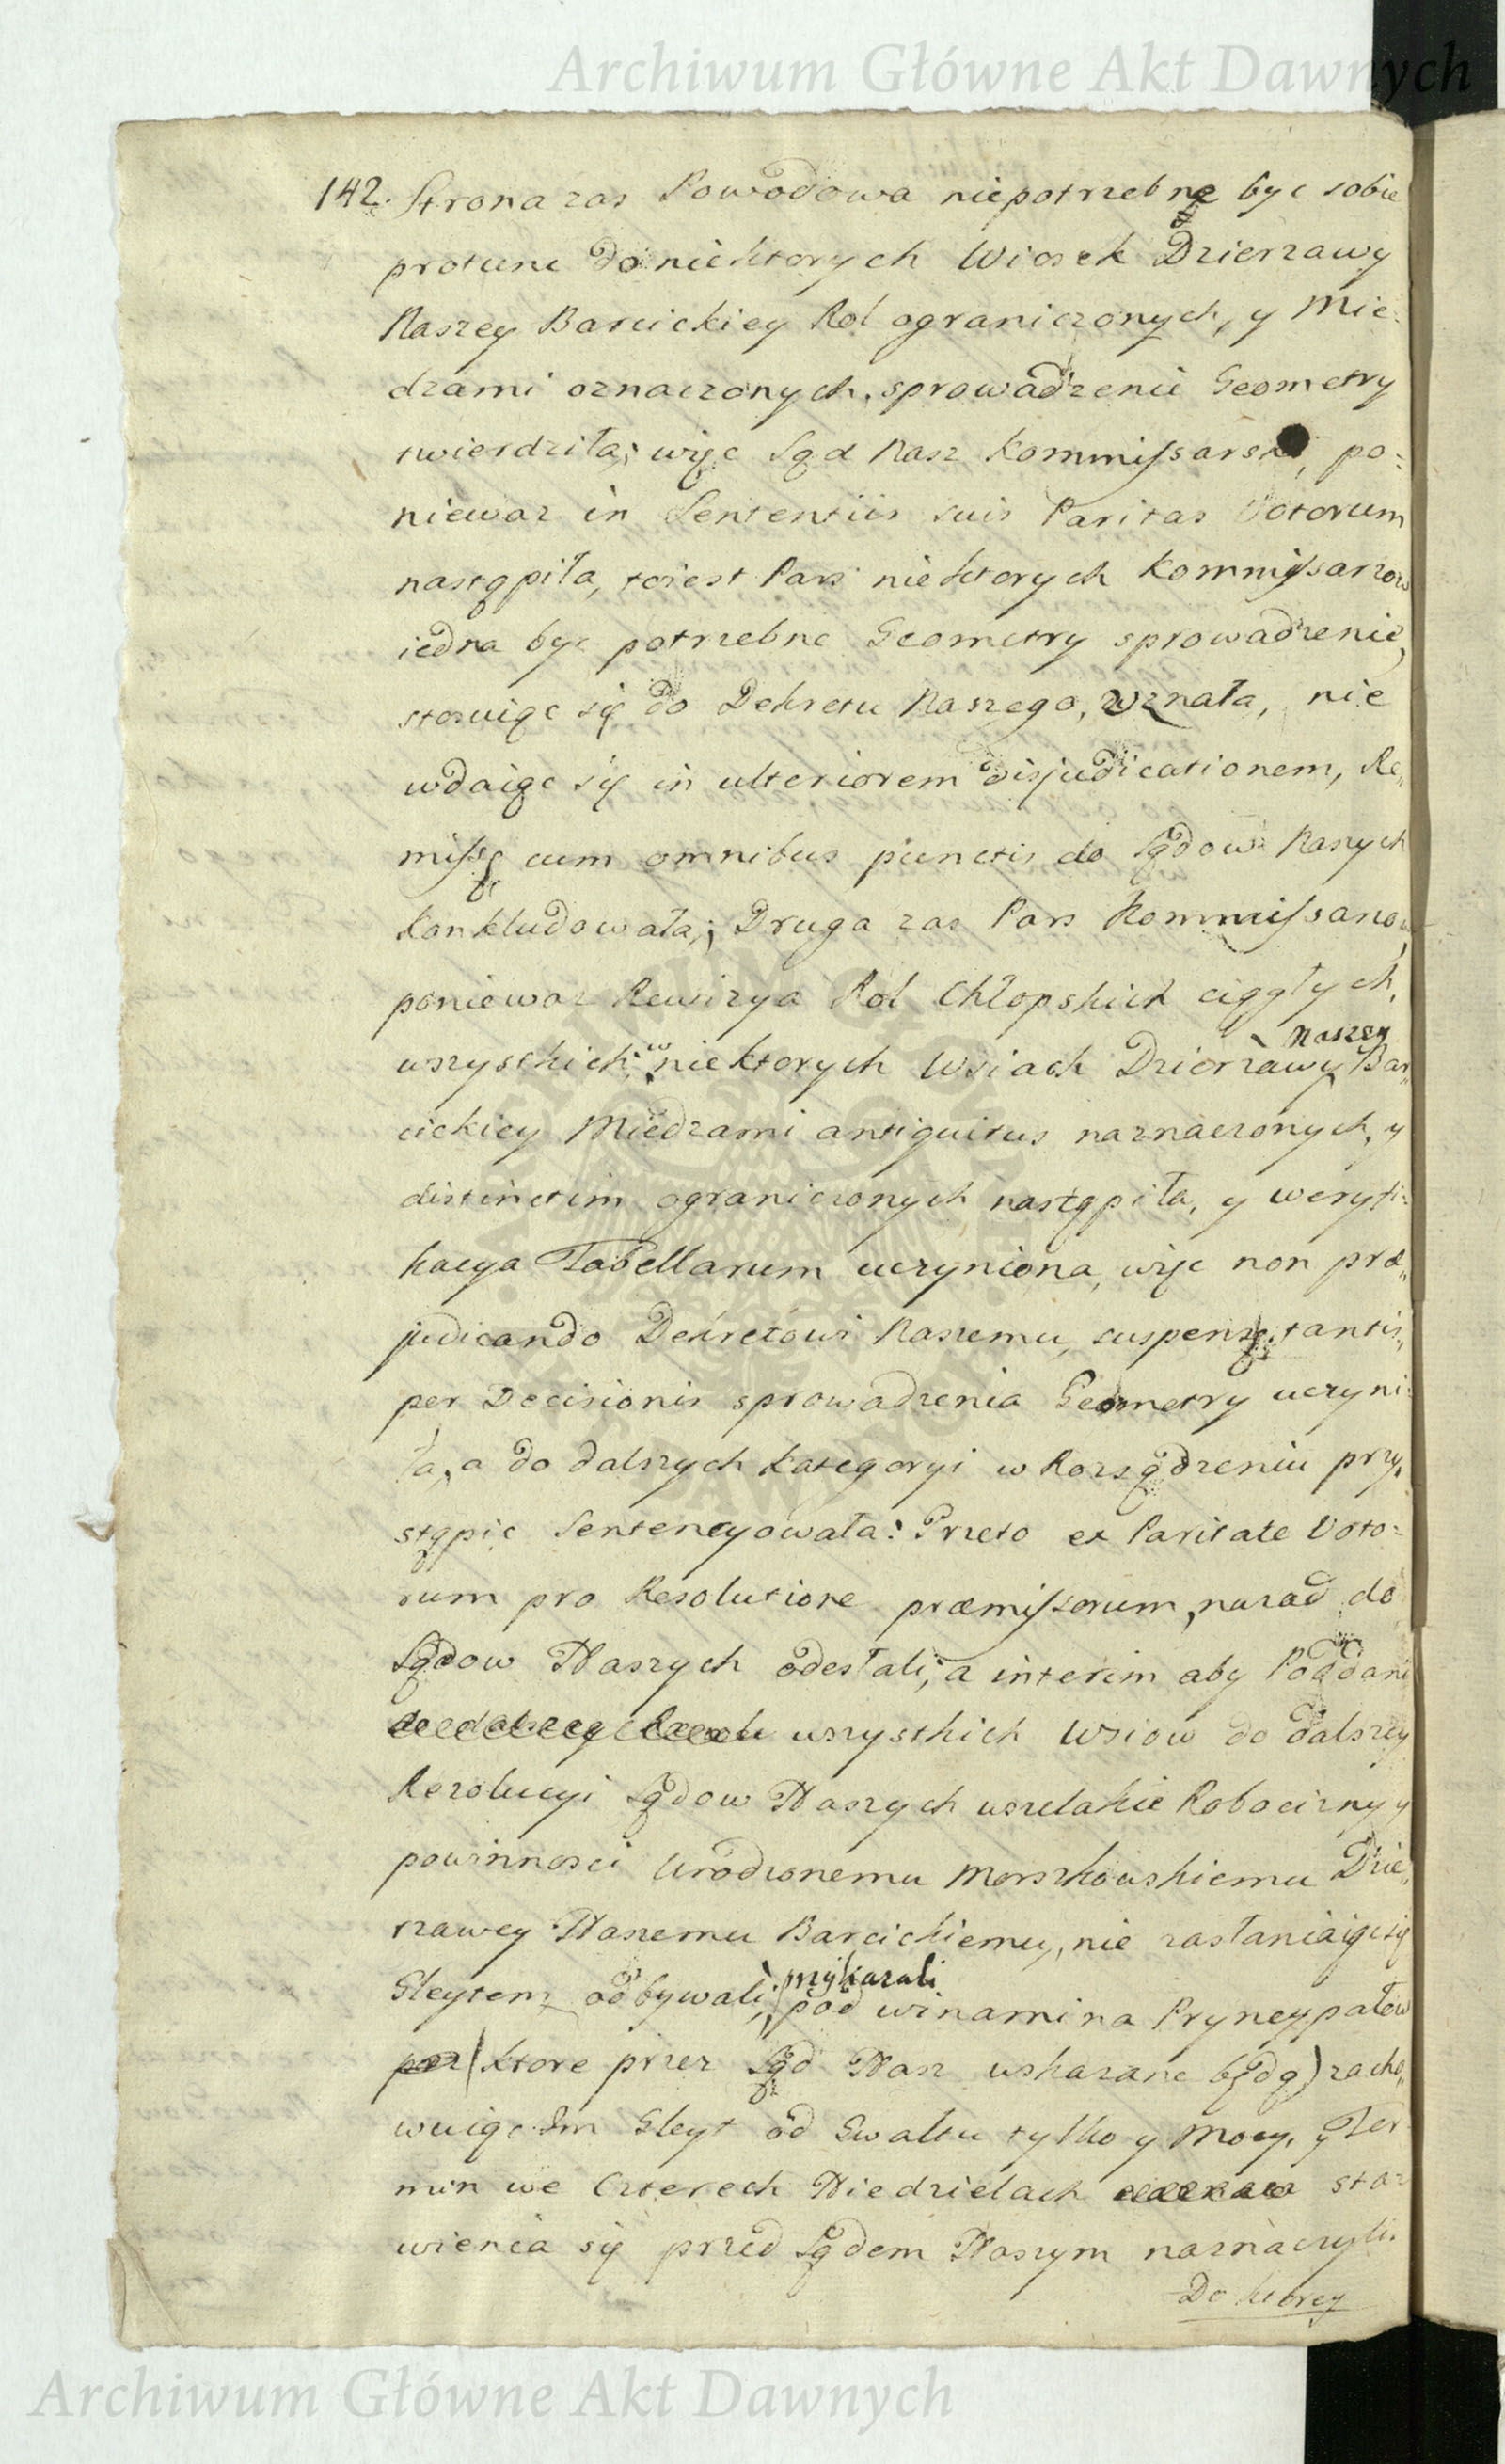 Archiwum Główne Akt Dawnych
142. Strona zas Powodowa niepotrzebne byc sobie
protune do niektorych Wiosek Dzierzawy
Naszey Barcickiey Rol ograniczonych, y Mie:
dzami oznaczonych, sprowadzenie Geometry
twierdziła; więc Sąd Nasz Kommissarski, po=
niewaz in Sententiis suis Paritas Votorum
nastąpiła, toiest Pars niektorych Kommissarzow
iedna byc potrzebne Geometry sprowadzenie,
stosuiąc się do Dekretu Naszego, uznała, nie
wdaiąc się in ulteriorem disjudicationem, Re„
missę cum omnibus punctis do Sądow Naszych
konkludowała; Druga zas Pars Kommissarzow,
poniewaz Rewizya Rol Chłopskich ciągłych,
wszystkich w niektorych Wsiach Dzierzawy Naszey Bar„
cickiey Miedzami antiquitus naznaczonych, y
distinctim ograniczonych nastąpiła, y weryfi:
kacya Tabellarum uczyniona, więc non præ„
judicando Dekretowi Naszemu, suspensę tantis„
per Decisionis sprowadzenia Geometry uczyni:
ła, a do dalszych kategoryi w Rozsądzeniu przy„
stąpic sentencyowała: Przeto ex Paritate Voto=
rum pro Resolutione præmissorum, nazad do
Sądow Naszych odesłali, a interim aby Poddani
wszystkich Wsiow do dalszey
Rezolucyi Sądow Naszych wszelakie Robocizny y
powinnosci Urodzonemu Morszkowskiemu Dzie„
rzawcy Naszemu Barcickiemu, nie zasłaniaiąc się
Gleytem odbywali, przykazali pod winami na Pryncypałow
(ktore przez Sąd Nasz wskazane będą) zacho„
wuiąc Im Gleyt od Gwałtu tylko y Mocy, y Ter
min we Czterech Niedzielach sta=
wienia się przed Sądem Naszym naznaczyli.
Do ktorey
Archiwum Główne Akt Dawnych